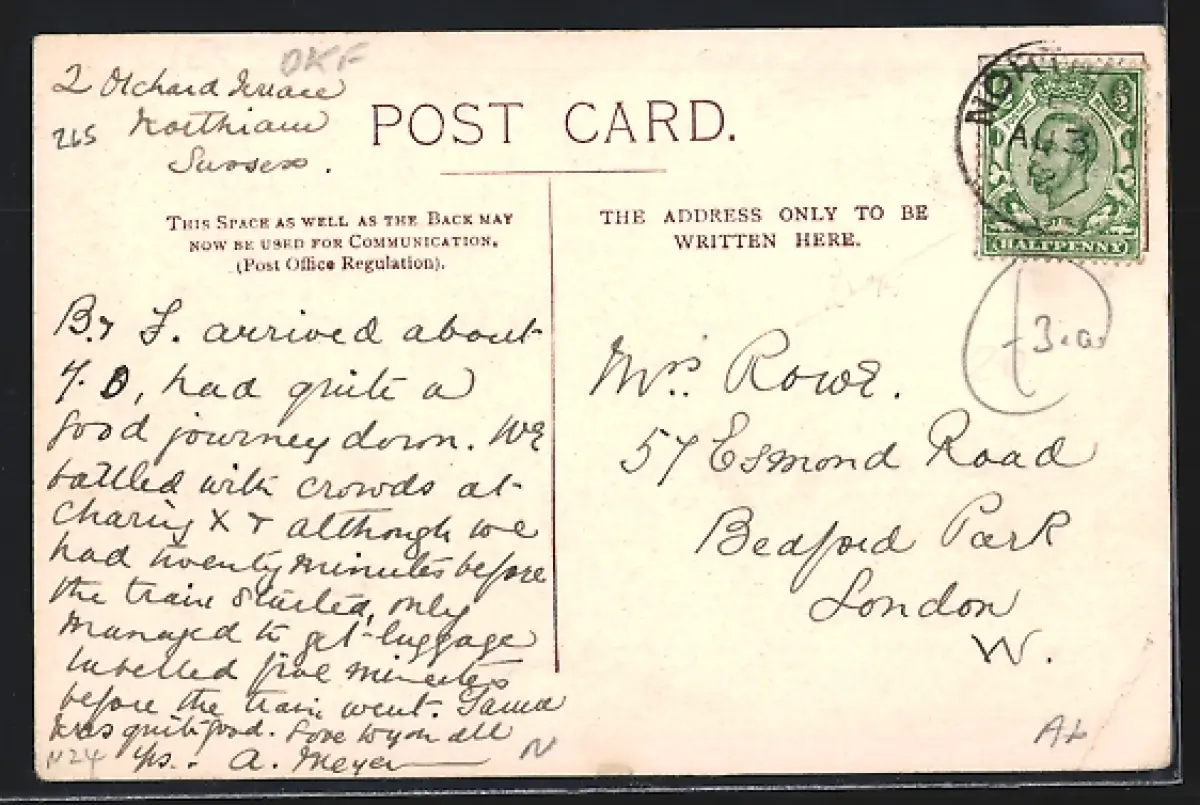 2 Orchard Terrace
Northiam
Sussex.
265
OKF
POST CARD.
THIS SPACE AS WELL AS THE BACK MAY
NOW BE USED FOR COMMUNICATION.
(Post Office Regulation).
THE ADDRESS ONLY TO BE
WRITTEN HERE.
NORTHIAM
AU 3
HALFPENNY
B. & F. arrived about
7. , had quite a
good journey down. We
battled with crowds at
Charing X & although we
had twenty minutes before
the train started, only
managed to get luggage
labelled five minutes
before the train went.
was quite good. Love to you all
yrs. A. Meyer
N24
N
Mrs. Rowe.
57 Esmond Road
Bedford Park
London
W.